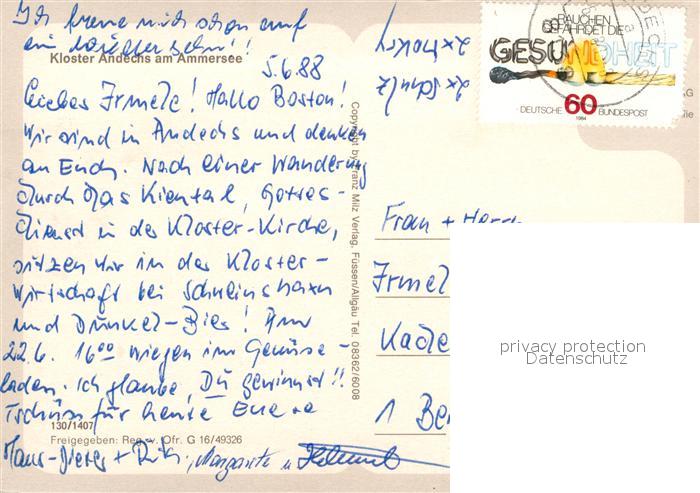 Ich freue mich schon auf
ein Wiedersehn!!
Kloster Andechs am Ammersee
5.6.88
Liebes Irmele! Hallo Boston!
Wir sind in Andechs und denken
an Euch. Nach einer Wanderung
durch das Kiental, Gottes-
dienst in der Kloster-Kirche,
sitzen wir in der Kloster-
wirtschaft bei Schweinshaxn
und Dunkel-Bier! Am
22.6. 16⁰⁰ wiegen im Gemüse-
laden. Ich glaube, Du gewinnst!!
Tschüss für heute Eue
130/1407
Freigegeben: Reg. v. Ofr. G 16/49326
Hans-Dieter + Margarete u. Helmut
Copyright by Franz Milz Verlag, Füssen/Allgäu Tel. 08362/6008
RAUCHEN
GEFÄHRDET DIE
GESUNDHEIT
DEUTSCHE 60 BUNDESPOST
1984
Frau + Herrn
Irmel
Kade
1 Ber
privacy protection
Datenschutz